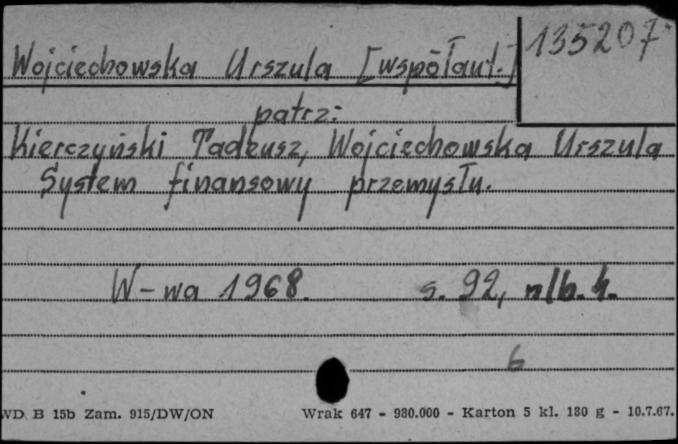 135207
Wojciechowska Urszula [współaut.]
patrz:
Kierczyński Tadeusz, Wojciechowska Urszula
System finansowy przemysłu.
W-wa 1968. s. 92, nlb. 4.
6
WD B 15b Zam. 915/DW/ON Wrak 647 - 980.000 - Karton 5 kl. 180 g - 10.7.67.